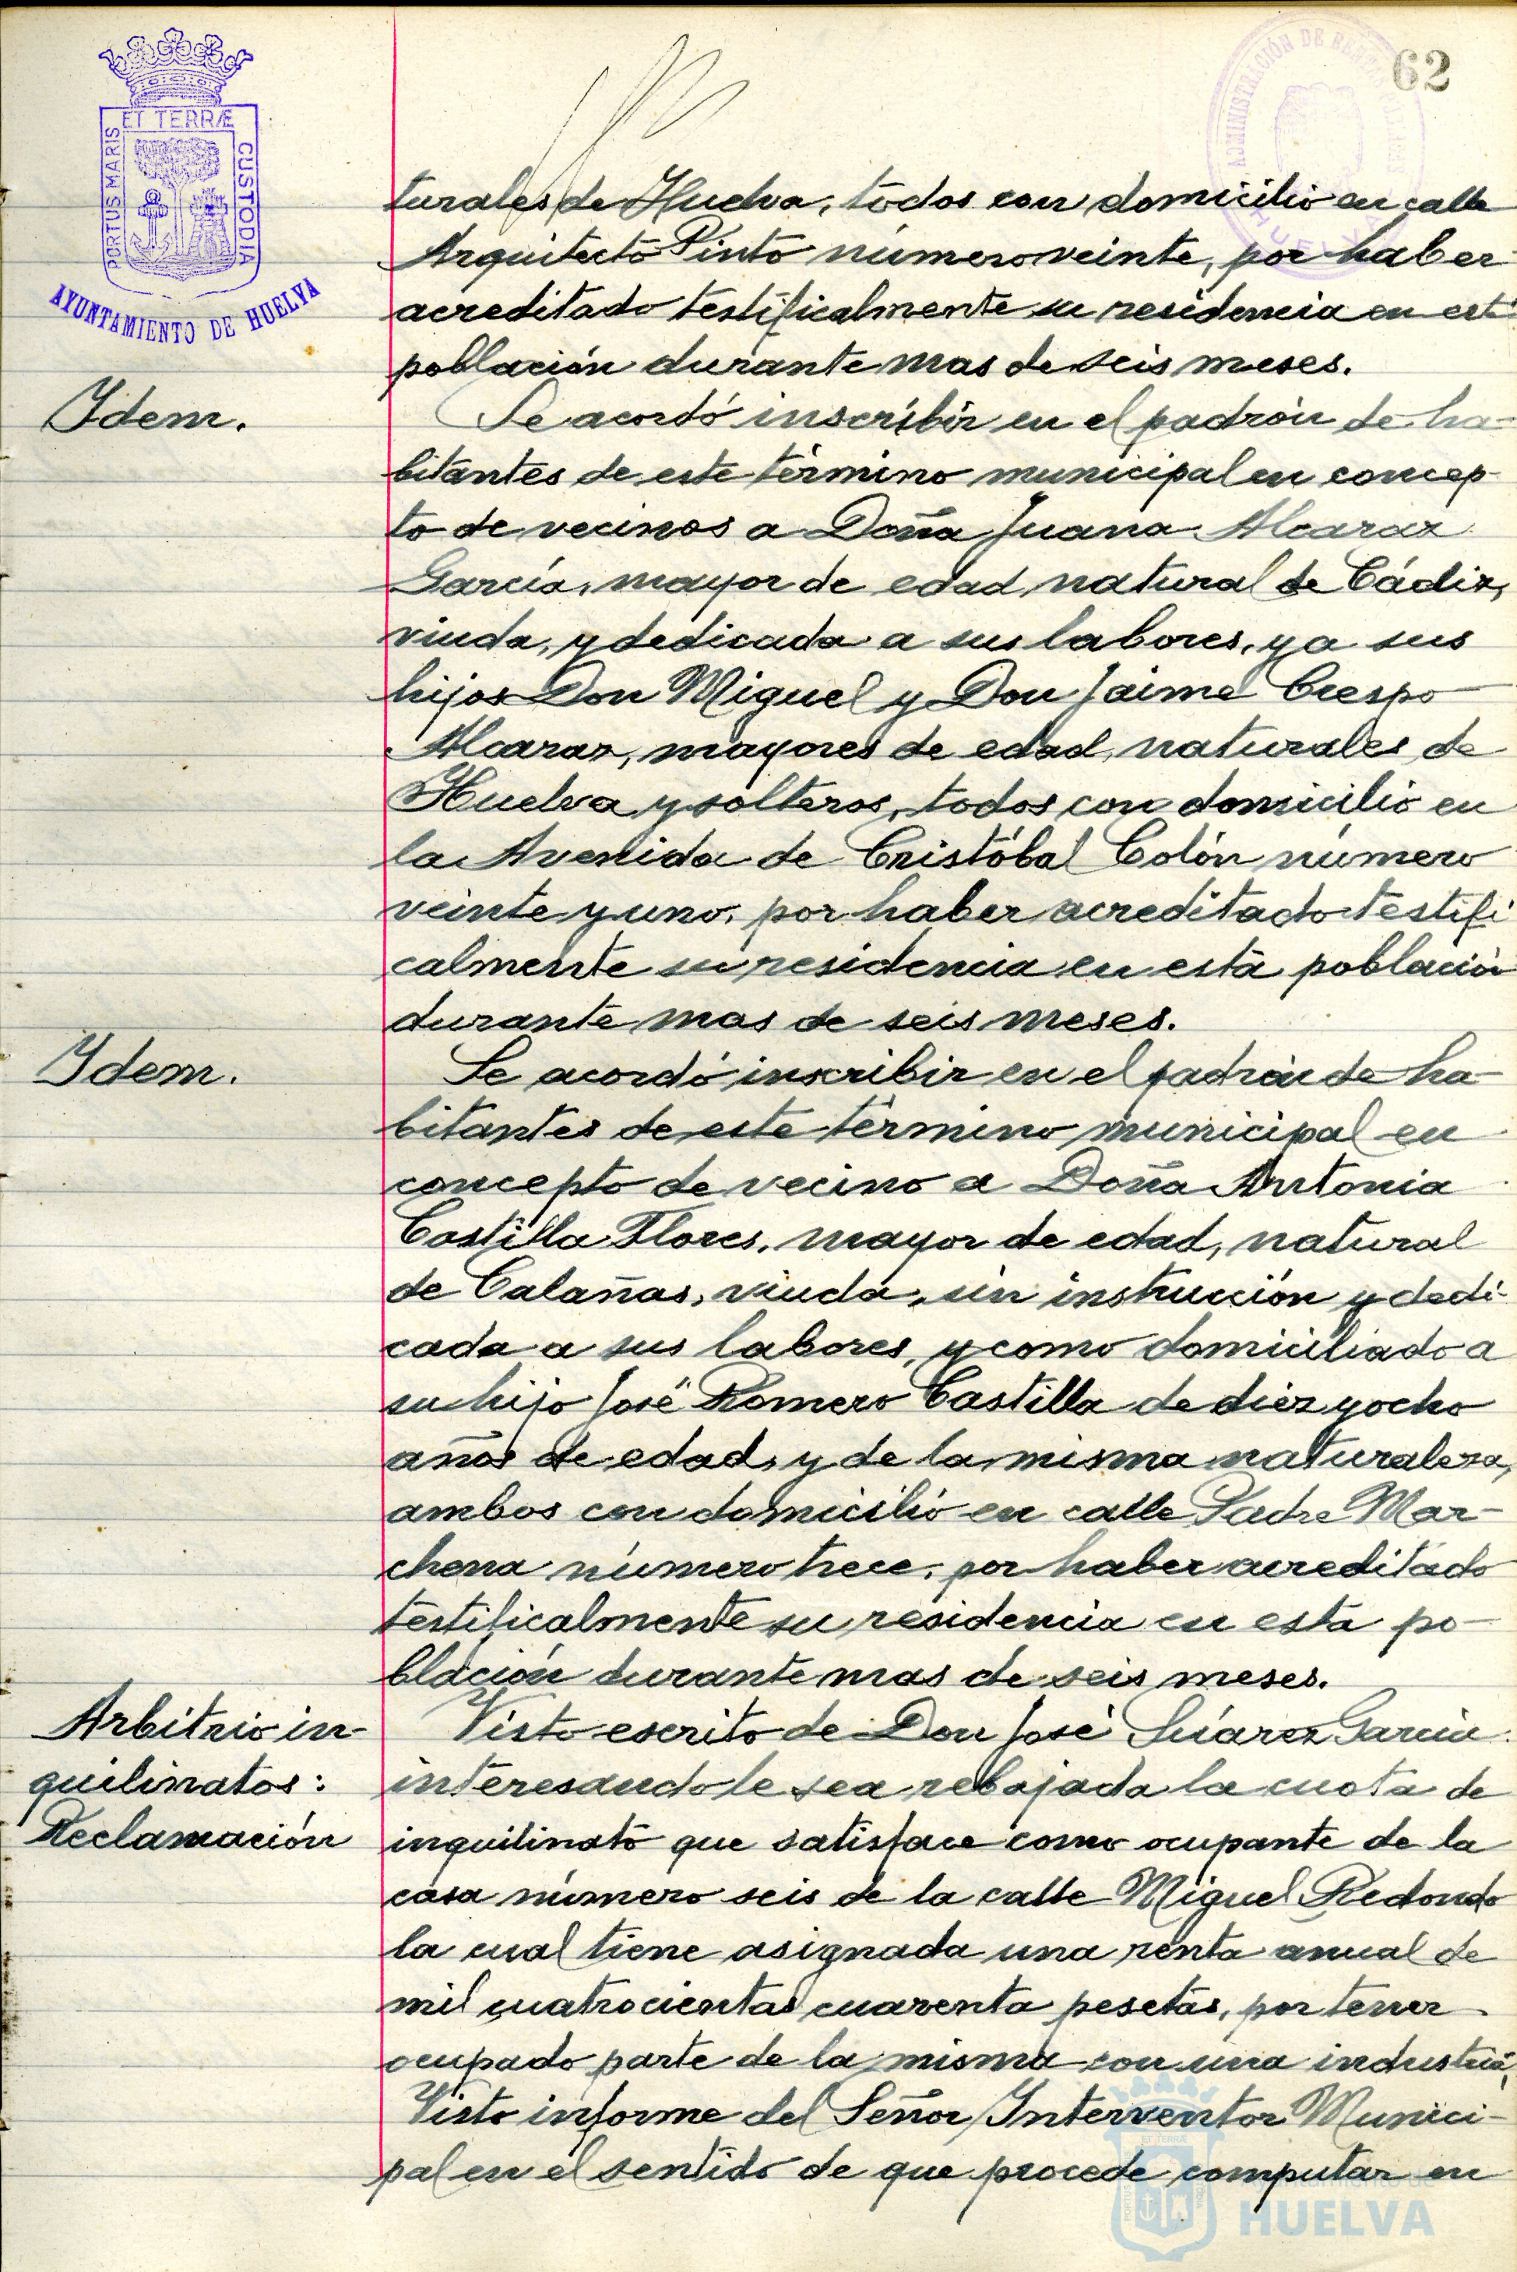 62
ET TERRÆ
PORTUS MARIS
CUSTODIA
AYUNTAMIENTO DE HUELVA
ADMINISTRACIÓN DE
HUELVA
turales de Huelva, todos con domicilio en calle
Arquitecto Pinto número veinte, por haber
acreditado testificalmente su residencia en esta
población durante mas de seis meses.
Idem.
Se acordó inscribir en el padrón de ha-
bitantes de este término municipal en concep-
to de vecinos a Doña Juana Alcaraz
García, mayor de edad, natural de Cádiz,
viuda, y dedicada a sus labores, y a sus
hijos Don Miguel y Don Jaime Crespo
Alcaraz, mayores de edad, naturales de
Huelva y solteros, todos con domicilio en
la Avenida de Cristóbal Colón número
veinte y uno, por haber acreditado testifi
calmente su residencia en esta población
durante mas de seis meses.
Idem.
Se acordó inscribir en el padrón de ha-
bitantes de este término municipal en
concepto de vecino a Doña Antonia
Castilla Flores, mayor de edad, natural
de Calañas, viuda, sin instrucción y dedi-
cada a sus labores, y como domiciliado a
su hijo José Romero Castilla de diez y ocho
años de edad, y de la misma naturaleza,
ambos con domicilio en calle Padre Mar-
chena número trece, por haber acreditado
testificalmente su residencia en esta po-
blación durante mas de seis meses.
Arbitrio in-
quilinatos:
Reclamación
Visto escrito de Don José Suárez García
interesando le sea rebajada la cuota de
inquilinato que satisface como ocupante de la
casa número seis de la calle Miguel Redondo
la cual tiene asignada una renta anual de
mil cuatrocientas cuarenta pesetas, por tener
ocupado parte de la misma con una industria,
Visto informe del Señor Interventor Munici-
pal en el sentido de que procede computar en
Ayuntamiento de
HUELVA